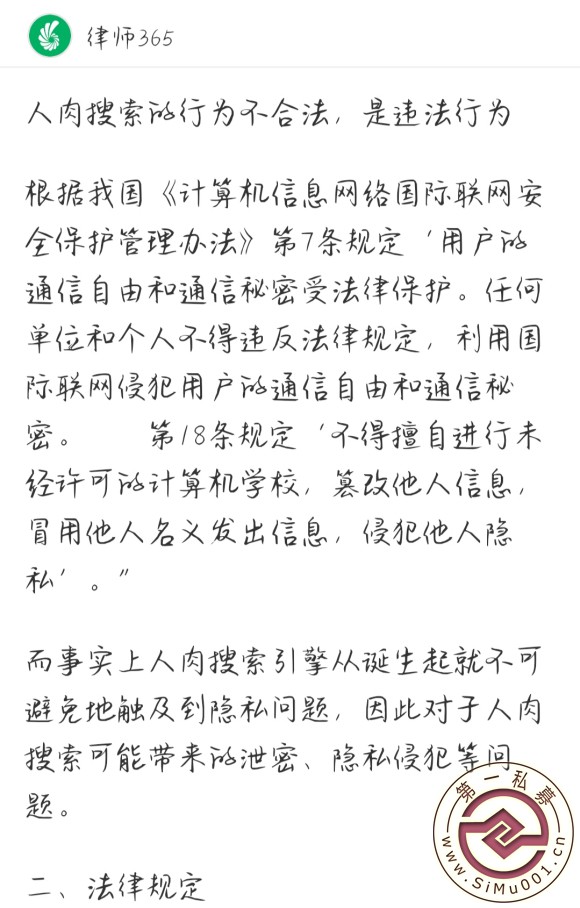 律师365
人肉搜索的行为不合法，是违法行为
根据我国《计算机信息网络国际联网安
全保护管理办法》第7条规定‘用户的
通信自由和通信秘密受法律保护。任何
单位和个人不得违反法律规定，利用国
际联网侵犯用户的通信自由和通信秘
密。 第18条规定‘不得擅自进行未
经许可的计算机学校，篡改他人信息，
冒用他人名义发出信息，侵犯他人隐
私’。”
而事实上人肉搜索引擎从诞生起就不可
避免地触及到隐私问题，因此对于人肉
搜索可能带来的泄密、隐私侵犯等问
题。
第一私募
www.SiMu001.cn
二、法律规定